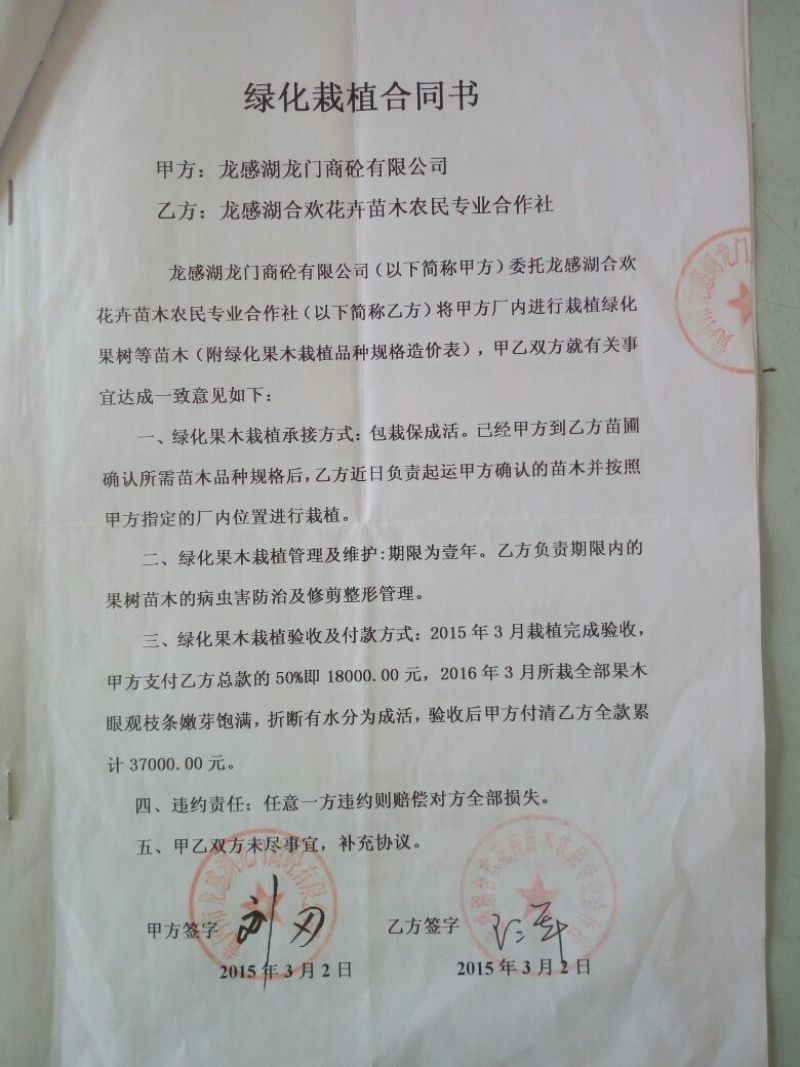 绿化栽植合同书
甲方：龙感湖龙门商砼有限公司
乙方：龙感湖合欢花卉苗木农民专业合作社
龙感湖龙门商砼有限公司（以下简称甲方）委托龙感湖合欢
花卉苗木农民专业合作社（以下简称乙方）将甲方厂内进行栽植绿化
果树等苗木（附绿化果木栽植品种规格造价表），甲乙双方就有关事
宜达成一致意见如下：
一、绿化果木栽植承接方式：包栽保成活。已经甲方到乙方苗圃
确认所需苗木品种规格后，乙方近日负责起运甲方确认的苗木并按照
甲方指定的厂内位置进行栽植。
二、绿化果木栽植管理及维护:期限为壹年。乙方负责期限内的
果树苗木的病虫害防治及修剪整形管理。
三、绿化果木栽植验收及付款方式：2015年3月栽植完成验收，
甲方支付乙方总款的50%即18000.00元，2016年3月所栽全部果木
眼观枝条嫩芽饱满，折断有水分为成活，验收后甲方付清乙方全款累
计37000.00元。
四、违约责任：任意一方违约则赔偿对方全部损失。
五、甲乙双方未尽事宜，补充协议。
甲方签字 乙方签字
2015年3月2日 2015年3月2日